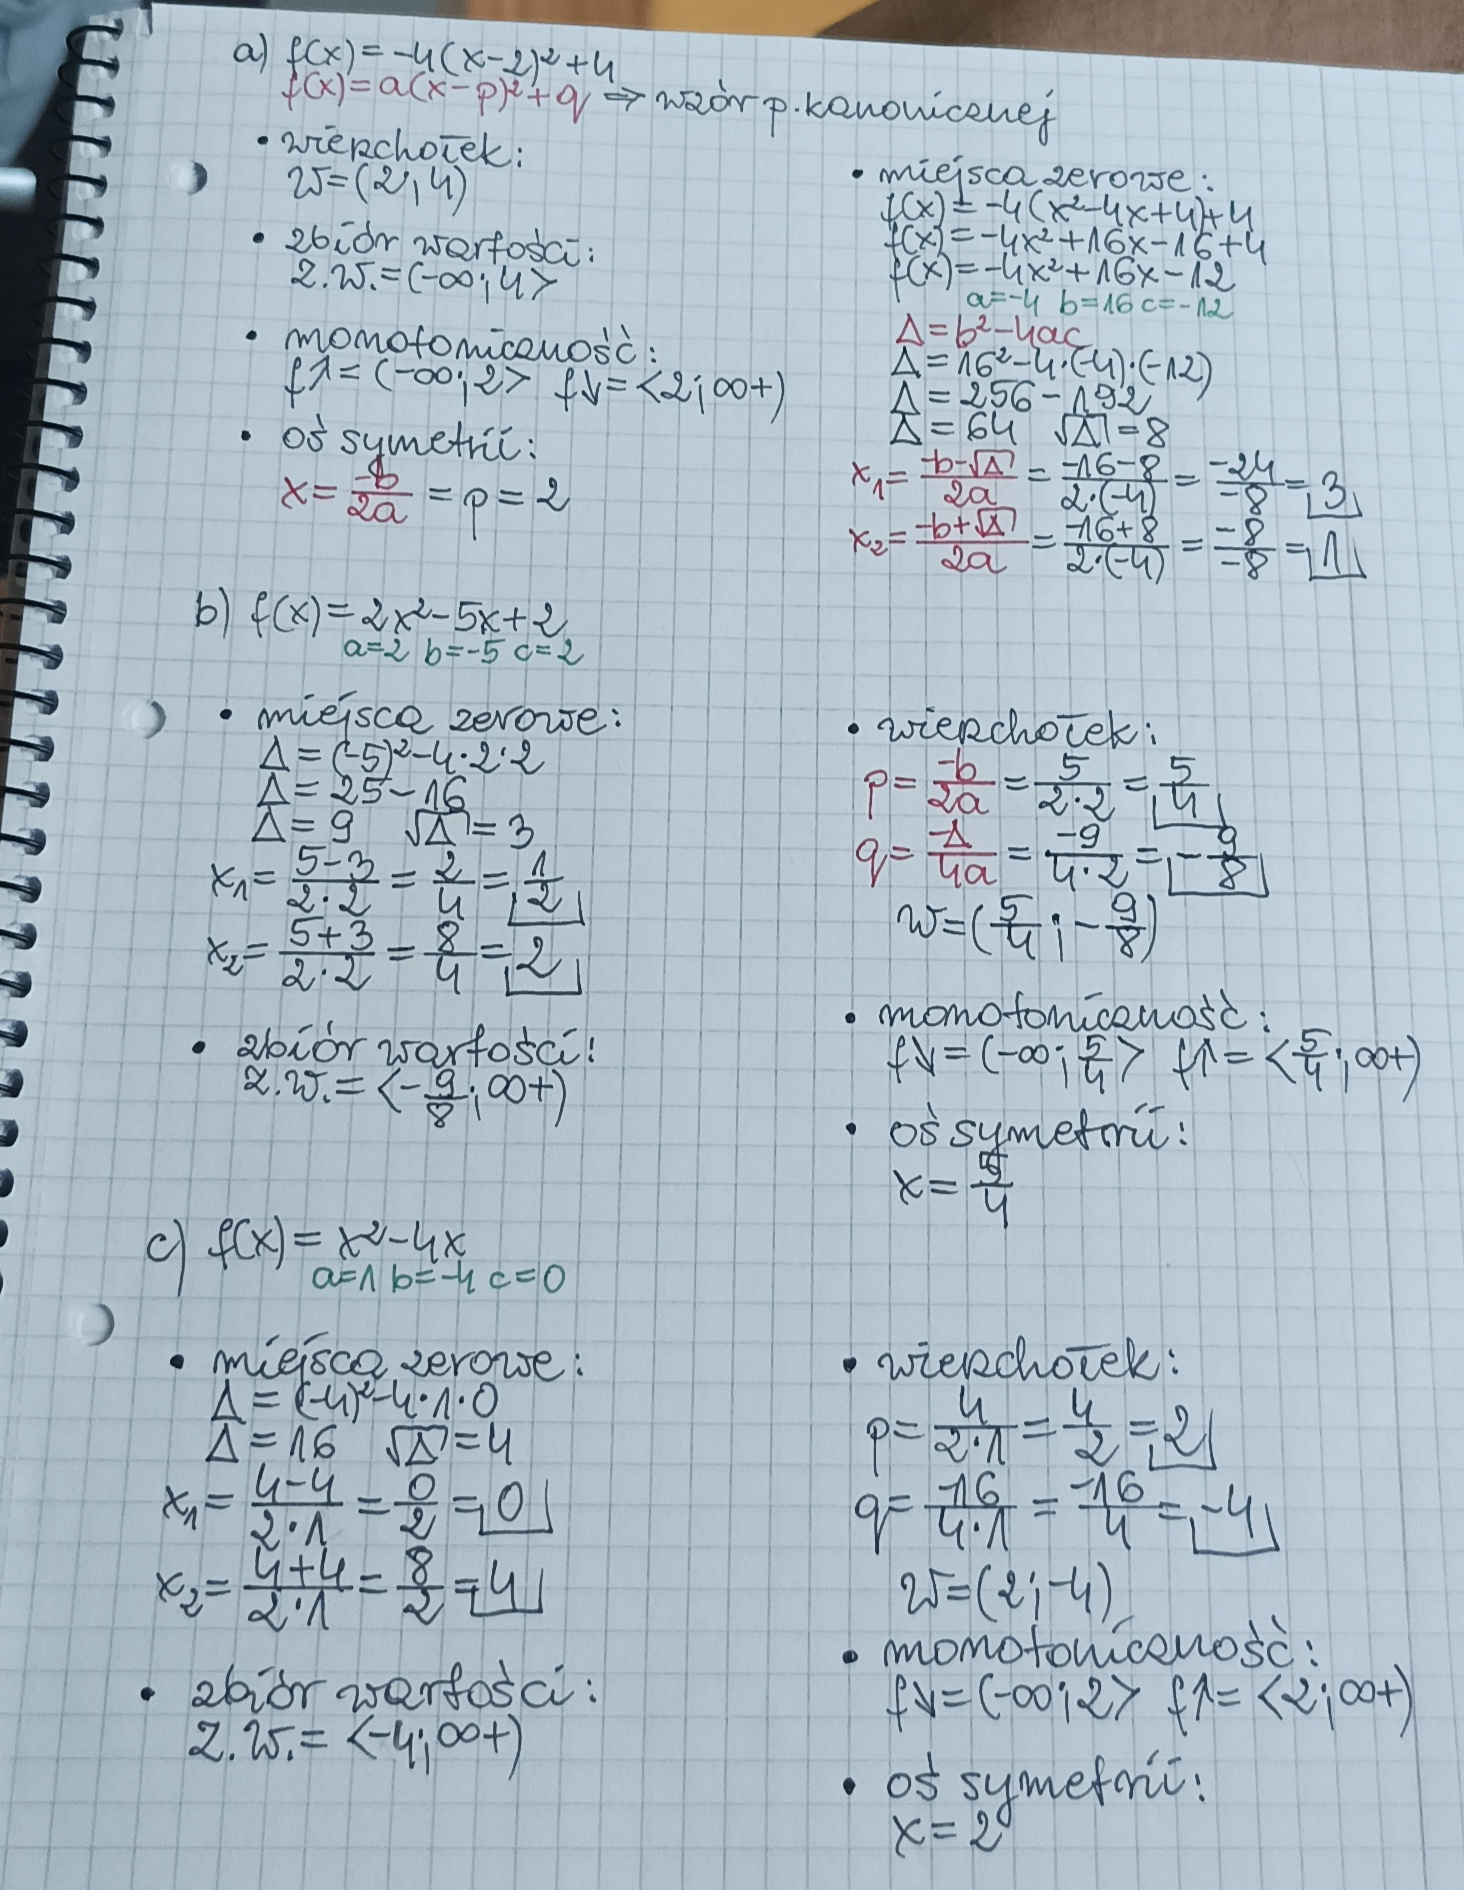 a) f(x) = -4(x-2)²+4
f(x) = a(x-p)²+q ⇒ wzór p. kanonicznej
• wierzchołek:
W=(2;4)
• zbiór wartości:
Z.W.=(-∞;4>
• monotoniczność:
f↗=(-∞;2> f↘=<2;∞+)
• oś symetrii:
x = -b/2a = p = 2
• miejsca zerowe:
f(x) = -4(x²-4x+4)+4
f(x) = -4x²+16x-16+4
f(x) = -4x²+16x-12
a=-4 b=16 c=-12
Δ = b²-4ac
Δ = 16²-4·(-4)·(-12)
Δ = 256-192
Δ = 64 √Δ = 8
x₁ = -b-√Δ/2a = -16-8/2·(-4) = -24/-8 = 3
x₂ = -b+√Δ/2a = -16+8/2·(-4) = -8/-8 = 1
b) f(x) = 2x²-5x+2
a=2 b=-5 c=2
• miejsca zerowe:
Δ = (-5)²-4·2·2
Δ = 25-16
Δ = 9 √Δ = 3
x₁ = 5-3/2·2 = 2/4 = 1/2
x₂ = 5+3/2·2 = 8/4 = 2
• zbiór wartości:
Z.W.=<-9/8;∞+)
• wierzchołek:
p = -b/2a = 5/2·2 = 5/4
q = -Δ/4a = -9/4·2 = -9/8
W=(5/4;-9/8)
• monotoniczność:
f↘=(-∞;5/4> f↗=<5/4;∞+)
• oś symetrii:
x = 5/4
c) f(x) = x²-4x
a=1 b=-4 c=0
• miejsca zerowe:
Δ = (-4)²-4·1·0
Δ = 16 √Δ = 4
x₁ = 4-4/2·1 = 0/2 = 0
x₂ = 4+4/2·1 = 8/2 = 4
• zbiór wartości:
Z.W.= <-4;∞+)
• wierzchołek:
p = 4/2·1 = 4/2 = 2
q = -16/4·1 = -16/4 = -4
W=(2;-4)
• monotoniczność:
f↘=(-∞;2> f↗=<2;∞+)
• oś symetrii:
x = 2